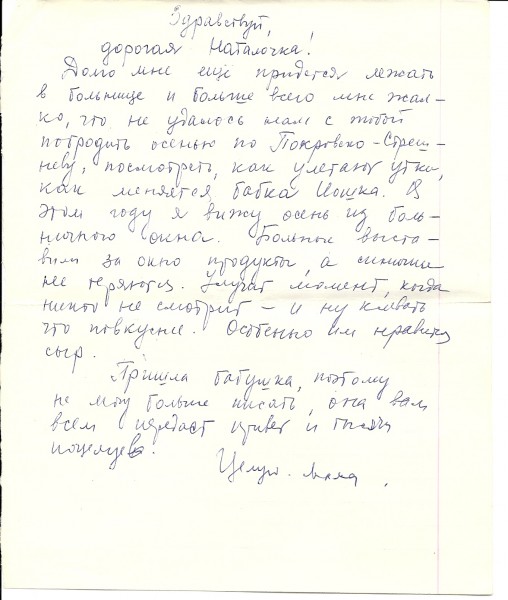 Здравствуй,
дорогая Наталочка!
Долго мне ещё придется лежать
в больнице и больше всего мне жал-
ко, что не удалось нам с тобой
побродить осенью по Покровско-Стреш-
неву, посмотреть, как улетают утки,
как меняется бабка Йошка. В
этом году я вижу осень из боль-
ничного окна. Больные выста-
вили за окно продукты, а синички
не теряются. Улучат момент, когда
никто не смотрит – и ну клевать
что повкуснее. Особенно им нравится
сыр.
Пришла бабушка, поэтому
не могу больше писать, она вам
всем передаёт привет и тысячу
поцелуев.
Целую. Мама.